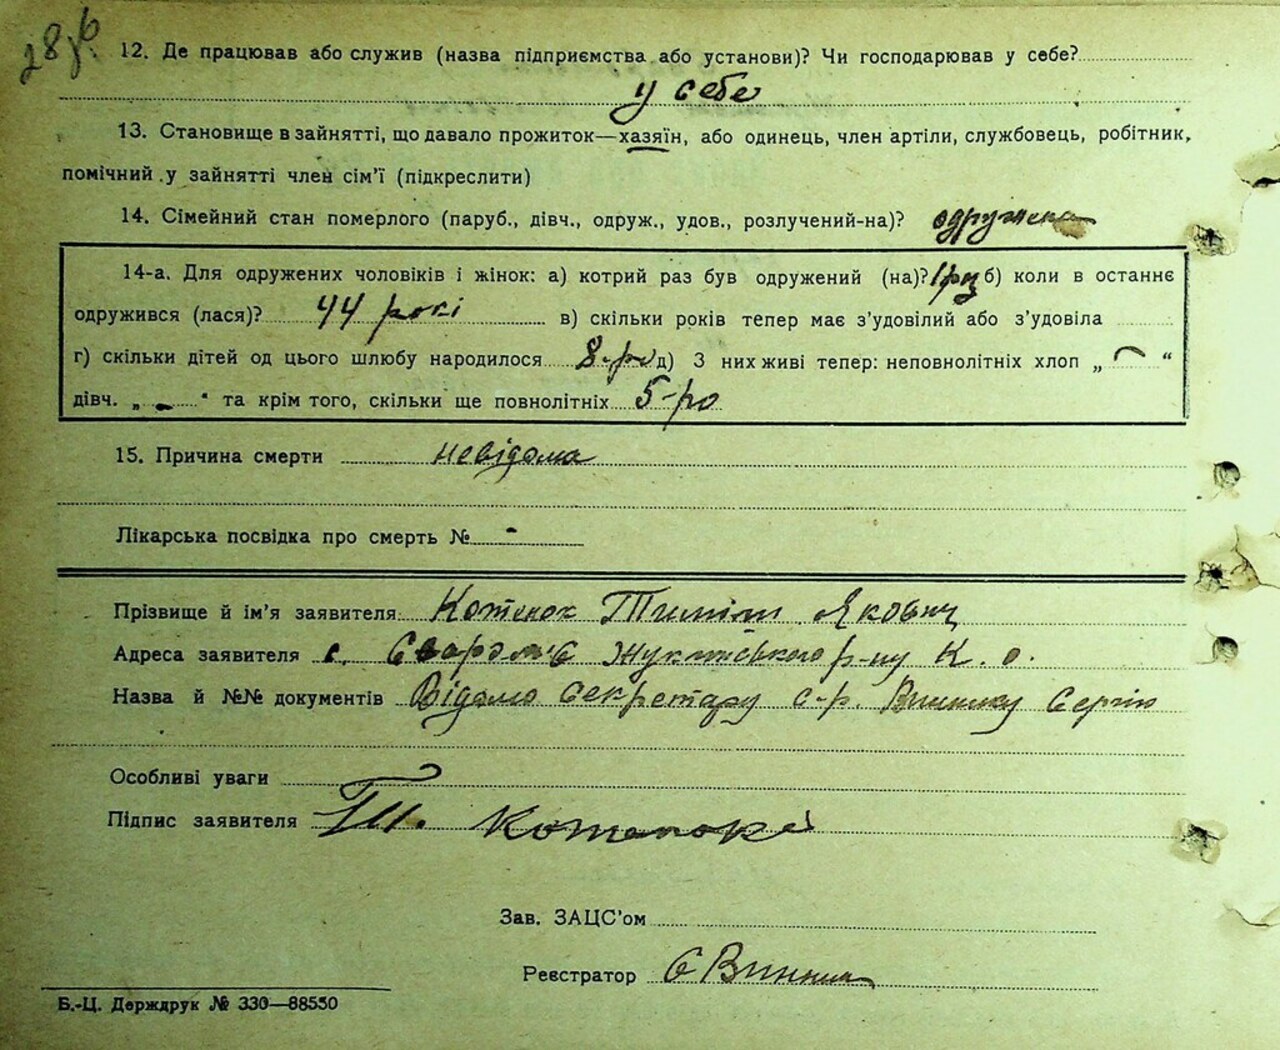 28зв.
12. Де працював або служив (назва підприємства або установи)? Чи господарював у себе?
у себе
13. Становище в зайнятті, що давало прожиток—хазяїн, або одинець, член артіли, службовець, робітник,
помічний у зайнятті член сім'ї (підкреслити)
14. Сімейний стан померлого (паруб., дівч., одруж., удов., розлучений-на)? одружена
14-а. Для одружених чоловіків і жінок: а) котрий раз був одружений (на)? 1 раз б) коли в останнє
одружився (лася)? 44 рокі в) скільки років тепер має з'удовілий або з'удовіла
г) скільки дітей од цього шлюбу народилося 8-ро д) З них живі тепер: неповнолітніх хлоп „ — “
дівч. „ — “ та крім того, скільки ще повнолітніх 5-ро
15. Причина смерти невідома
Лікарська посвідка про смерть № -
Прізвище й ім'я заявителя Котенок Якович
Адреса заявителя с. Сваром'є р-ну К. о.
Назва й №№ документів Відомо секретару с-р. Сергію
Особливі уваги
Підпис заявителя
Зав. ЗАЦС'ом
Реєстратор
Б.-Ц. Держдрук № 330—88550